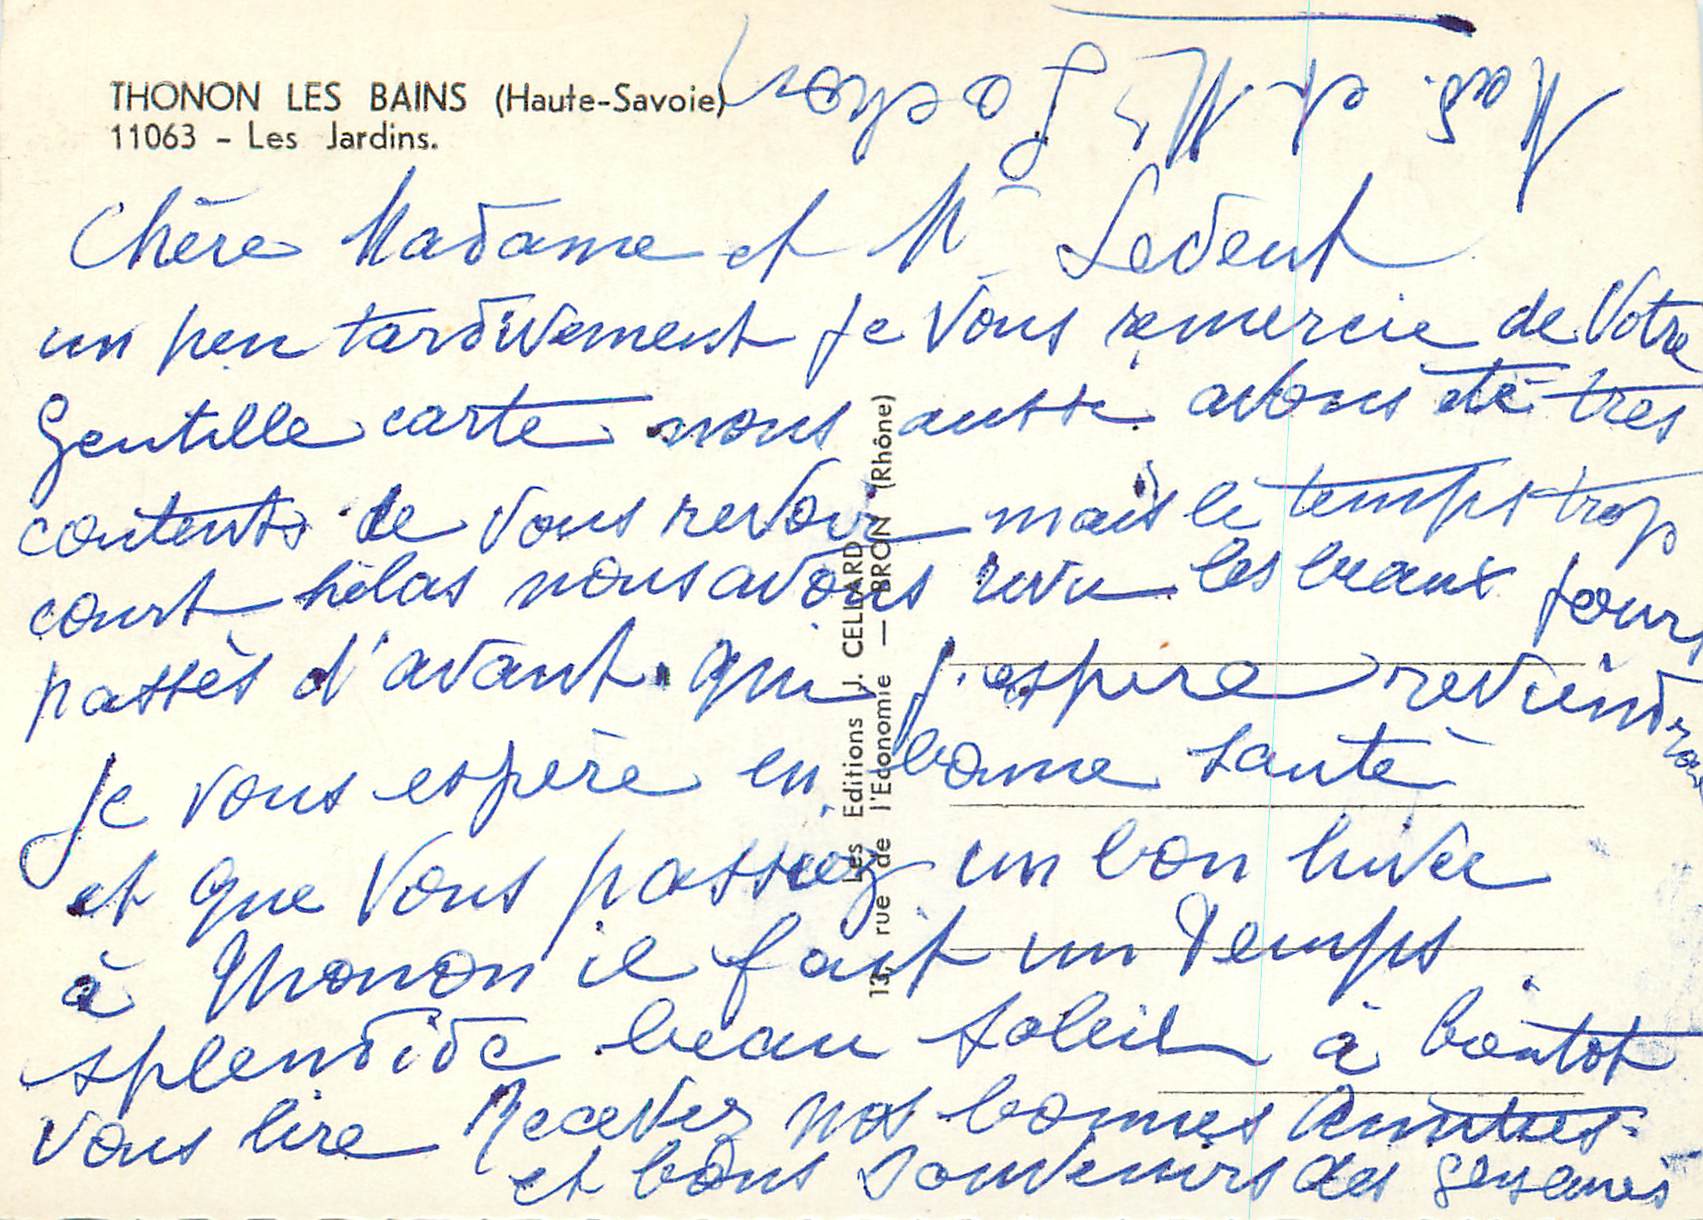 THONON LES BAINS (Haute-Savoie)
11063 - Les Jardins.
Chère Madame et Mr Ledent
un peu tardivement je vous remercie de votre
gentille carte nous aussi avons été très
contents de vous revoir mais le temps trop
court hélas nous avons revu les beaux jours
passés d'avant qui j'espère reviendrons
je vous espère en bonne santé
et que vous passiez un bon hiver
à Thonon il fait un temps
splendide beau soleil à bientot
vous lire Recevez nos bonnes Amitiés
et bons souvenirs des
Les Editions J. CELLARD
13, rue de l'Economie — BRON (Rhône)